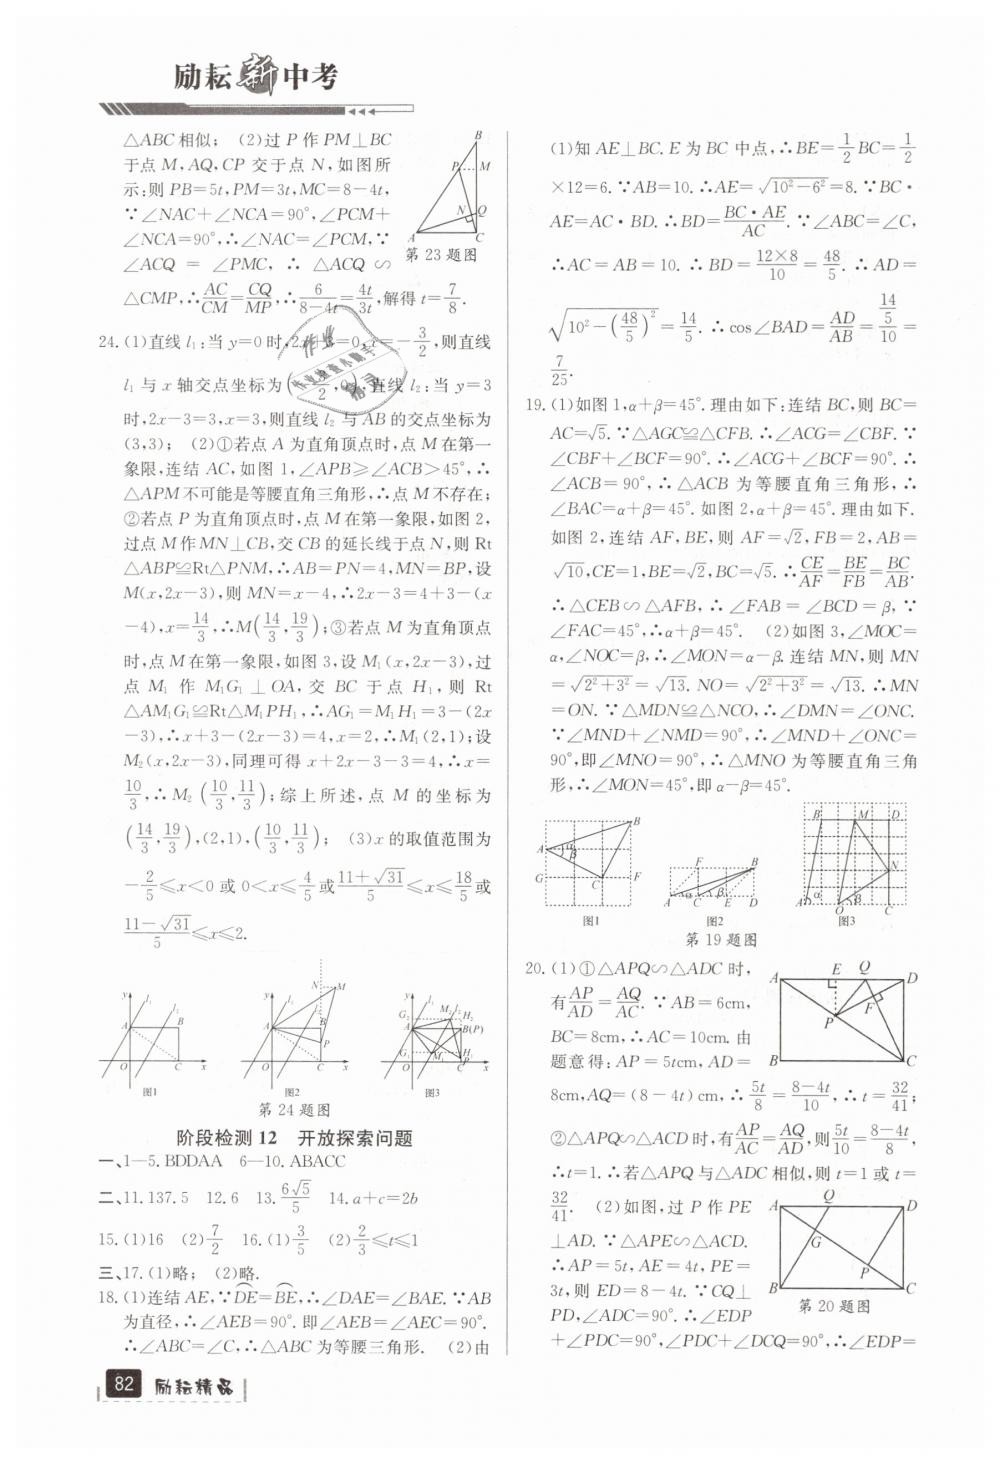 励耘新中考
△ABC相似; (2)过P作PM⊥BC
于点M,AQ,CP交于点N,如图所
示:则PB=5t,PM=3t,MC=8-4t,
∵∠NAC+∠NCA=90°,∠PCM+
∠NCA=90°,∴∠NAC=∠PCM,∵
∠ACQ = ∠PMC, ∴ △ACQ ∽
△CMP,∴AC/CM=CQ/MP,∴6/(8-4t)=4t/3t,解得t=7/8.
B
P M
N Q
A C
第23题图
24.(1)直线l₁:当y=0时,2x+3=0,x=-3/2,则直线
l₁与x轴交点坐标为(-3/2,0),直线l₂:当y=3
时,2x-3=3,x=3,则直线l₂与AB的交点坐标为
(3,3); (2)①若点A为直角顶点时,点M在第一
象限,连结AC,如图1,∠APB≥∠ACB>45°,∴
△APM不可能是等腰直角三角形,∴点M不存在;
②若点P为直角顶点时,点M在第一象限,如图2,
过点M作MN⊥CB,交CB的延长线于点N,则Rt
△ABP≌Rt△PNM,∴AB=PN=4,MN=BP,设
M(x,2x-3),则MN=x-4,∴2x-3=4+3-(x
-4),x=14/3,∴M(14/3,19/3);③若点M为直角顶点
时,点M在第一象限,如图3,设M₁(x,2x-3),过
点M₁作M₁G₁⊥OA,交BC于点H₁,则Rt
△AM₁G₁≌Rt△M₁PH₁,∴AG₁=M₁H₁=3-(2x
-3),∴x+3-(2x-3)=4,x=2,∴M₁(2,1);设
M₂(x,2x-3),同理可得x+2x-3-3=4,∴x=
10/3,∴M₂(10/3,11/3);综上所述,点M的坐标为
(14/3,19/3),(2,1),(10/3,11/3); (3)x的取值范围为
-2/5≤x<0或0<x≤4/5或(11+√31)/5≤x≤18/5或
(11-√31)/5≤x≤2.
图1 图2 图3
第24题图
阶段检测12 开放探索问题
一、1—5.BDDAA 6—10.ABACC
二、11.137.5 12.6 13.6√5/5 14.a+c=2b
15.(1)16 (2)7/2 16.(1)3/5 (2)2/3≤t≤1
三、17.(1)略; (2)略.
18.(1)连结AE,∵DE=BE,∴∠DAE=∠BAE.∵AB
为直径,∴∠AEB=90°.即∠AEB=∠AEC=90°.
∴∠ABC=∠C,∴△ABC为等腰三角形. (2)由
82 励耘精品
(1)知AE⊥BC.E为BC中点,∴BE=1/2BC=1/2
×12=6.∵AB=10.∴AE=√(10²-6²)=8.∵BC·
AE=AC·BD.∴BD=BC·AE/AC.∵∠ABC=∠C,
∴AC=AB=10.∴BD=12×8/10=48/5.∴AD=
√(10²-(48/5)²)=14/5.∴cos∠BAD=AD/AB=(14/5)/10=
7/25.
19.(1)如图1,α+β=45°.理由如下:连结BC,则BC=
AC=√5.∵△AGC≌△CFB.∴∠ACG=∠CBF.∵
∠CBF+∠BCF=90°.∴∠ACG+∠BCF=90°.∴
∠ACB=90°,∴△ACB为等腰直角三角形,∴
∠BAC=α+β=45°.如图2,α+β=45°.理由如下.
如图2,连结AF,BE,则AF=√2,FB=2,AB=
√10,CE=1,BE=√2,BC=√5.∴CE/AF=BE/FB=BC/AB.
∴△CEB∽△AFB,∴∠FAB=∠BCD=β,∵
∠FAC=45°,∴α+β=45°. (2)如图3,∠MOC=
α,∠NOC=β,∴∠MON=α-β.连结MN,则MN
=√(2²+3²)=√13.NO=√(2²+3²)=√13.∴MN
=ON.∵△MDN≌△NCO,∴∠DMN=∠ONC.
∵∠MND+∠NMD=90°,∴∠MND+∠ONC=
90°,即∠MNO=90°,∴△MNO为等腰直角三角
形,∴∠MON=45°,即α-β=45°.
图1 图2 图3
第19题图
20.(1)①△APQ∽△ADC时,
有AP/AD=AQ/AC.∵AB=6cm,
BC=8cm,∴AC=10cm.由
题意得:AP=5tcm,AD=
8cm,AQ=(8-4t)cm,∴5t/8=(8-4t)/10,∴t=32/41;
②△APQ∽△ACD时,有AP/AC=AQ/AD,则5t/10=(8-4t)/8,
∴t=1.∴若△APQ与△ADC相似,则t=1或t=
32/41. (2)如图,过P作PE
⊥AD.∵△APE∽△ACD.
∴AP=5t,AE=4t,PE=
3t,则ED=8-4t.∵CQ⊥
PD,∠ADC=90°.∴∠EDP
+∠PDC=90°,∠PDC+∠DCQ=90°,∴∠EDP=
A E Q D
P F
B C
A Q D
G
P
B C
第20题图